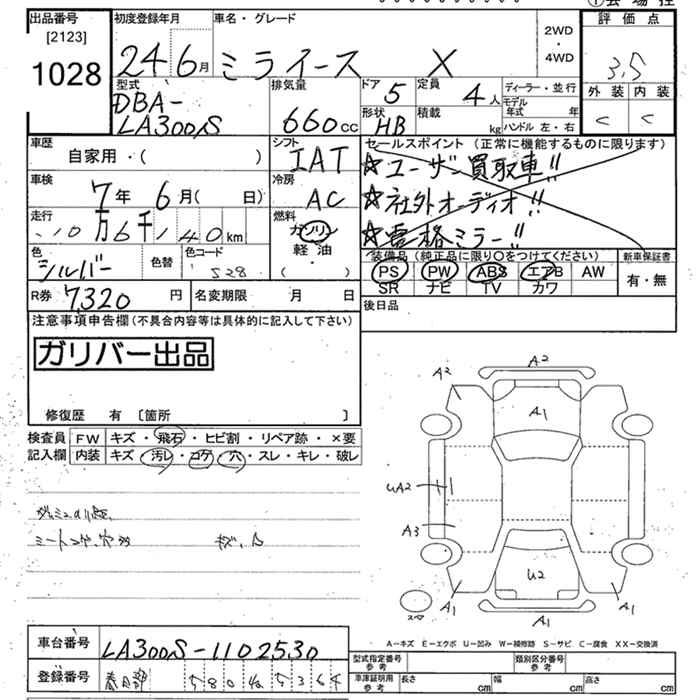 出品番号
[2123]
1028
初度登録年月
24 6月
車名・グレード
ミライース X
2WD
・
4WD
評価点
3.5
外装 内装
C C
型式
DBA-
LA300S
排気量
660cc
ドア 5
形状 HB
定員 4人
積載 kg
ディーラー・並行
モデル年式 年
ハンドル 左・右
車歴
自家用・( )
シフト
IAT
セールスポイント(正常に機能するものに限ります)
☆ユーザー買取車!!
☆社外オーディオ!!
☆電格ミラー!!
車検
7年 6月( 日)
冷房
AC
走行
10万6千140km
燃料
ガソリン
軽油
( )
色
シルバー
色替
色コード
S28
装備品(純正品に限り○をつけてください)
PS PW ABS エアB AW
SR ナビ TV カワ
新車保証書
有・無
R券 7320円
名変期限 月 日
後日品
注意事項申告欄(不具合内容等は具体的に記入して下さい)
ガリバー出品
修復歴 有 〔箇所 〕
検査員
記入欄
FW キズ・飛石・ヒビ割・リペア跡・×要
内装 キズ・汚レ・コゲ・穴・スレ・キレ・破レ
A2
A2
A1
UA2
A3
U2
A1
A1
A1
スペア
A-キズ E-エクボ U-凹み W-補修跡 S-サビ C-腐食 XX-交換済
車台番号
LA300S-1102530
登録番号
春日部 580 5364
型式指定番号
参考
類別区分番号
参考
車庫証明用
参考
長さ cm
幅 cm
高さ cm